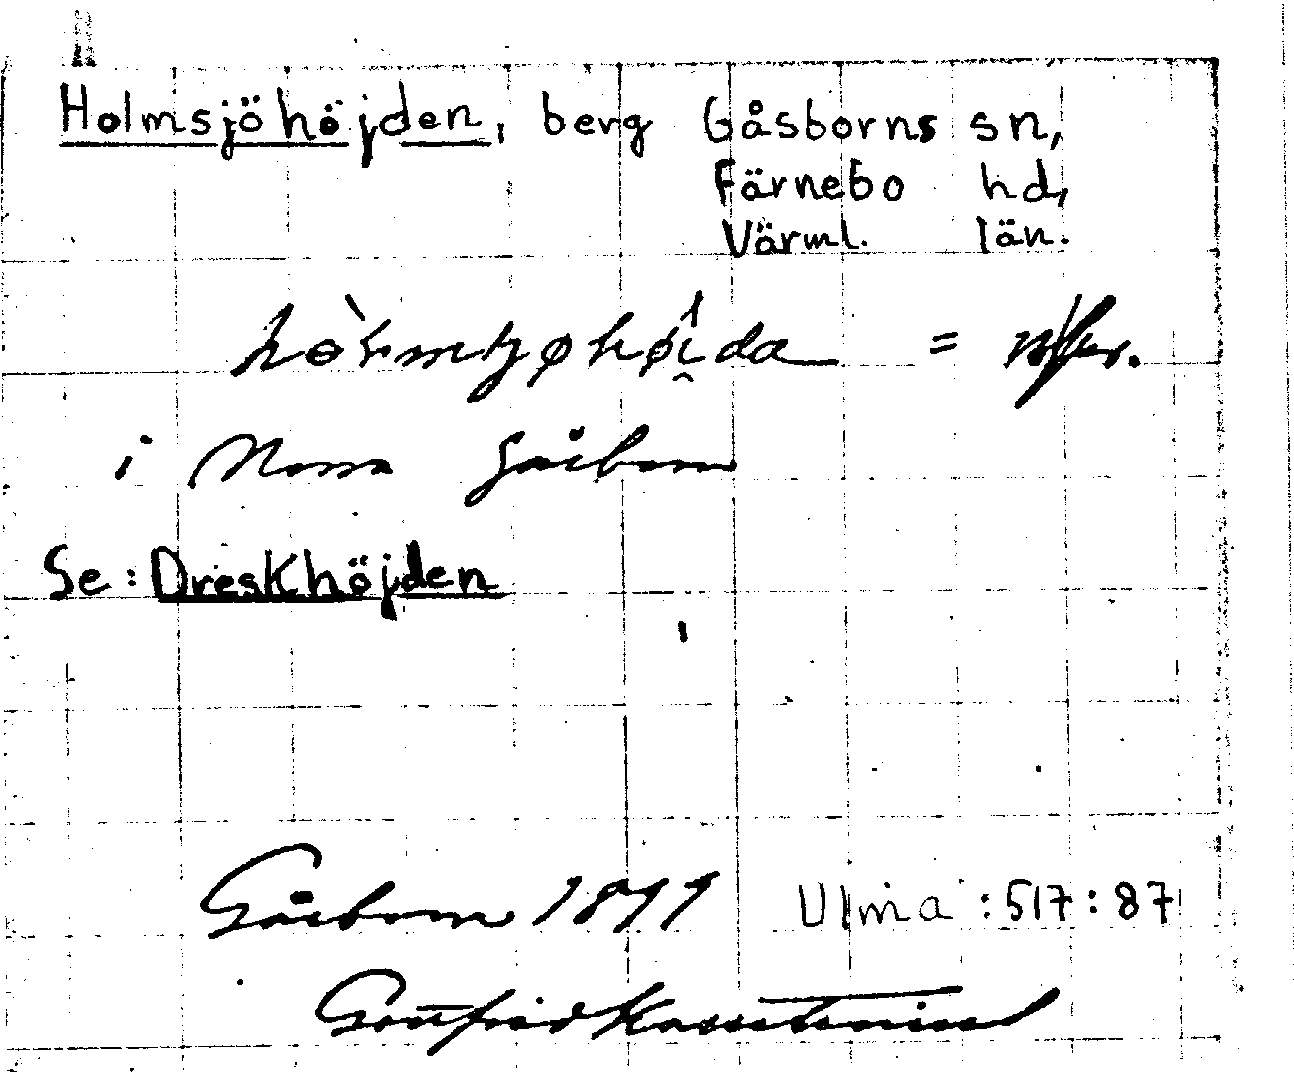 Holmsjöhöjden, berg Gåsborns sn,
Färnebo hd,
Värml. län.
=
i Norra Gåsborn
Se: Dreskhöjden
Gåsborn Ulma: 517: 87
Gottfrid Kallstenius